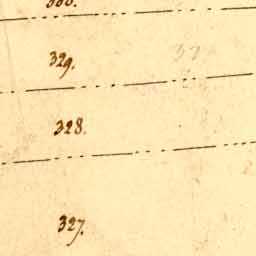 329.
328.
327.